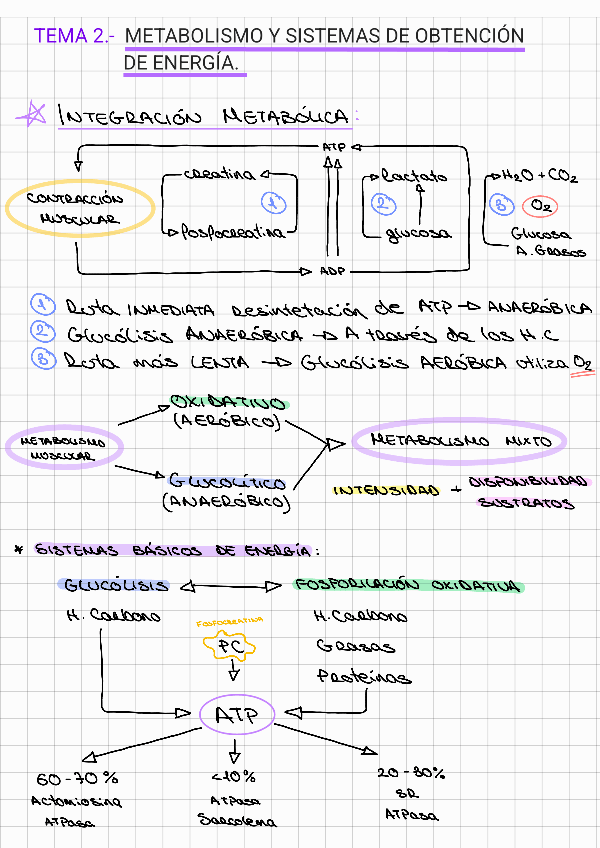 TEMA 2.- METABOLISMO Y SISTEMAS DE OBTENCIÓN
DE ENERGÍA.
INTEGRACIÓN METABÓLICA:
ATP
creatina
lactato
H2O + CO2
CONTRACCIÓN
MUSCULAR
1
2
3
O2
fosfocreatina
glucosa
Glucosa
A. Grasos
ADP
1 Ruta INMEDIATA resintetación de ATP → ANAERÓBICA
2 Glucólisis ANAERÓBICA → A través de los H.C
3 Ruta más LENTA → Glucólisis AERÓBICA utiliza O2
OXIDATIVO
(AERÓBICO)
METABOLISMO
MUSCULAR
METABOLISMO MIXTO
GLUCOLÍTICO
(ANAERÓBICO)
INTENSIDAD + DISPONIBILIDAD
SUSTRATOS
* SISTEMAS BÁSICOS DE ENERGÍA:
GLUCÓLISIS ↔ FOSFORILACIÓN OXIDATIVA
H. Carbono
FOSFOCREATINA
PC
H. Carbono
Grasas
Proteínas
ATP
60-70%
Actomiosina
ATPasa
<10%
ATPasa
Sarcolema
20-30%
SR
ATPasa